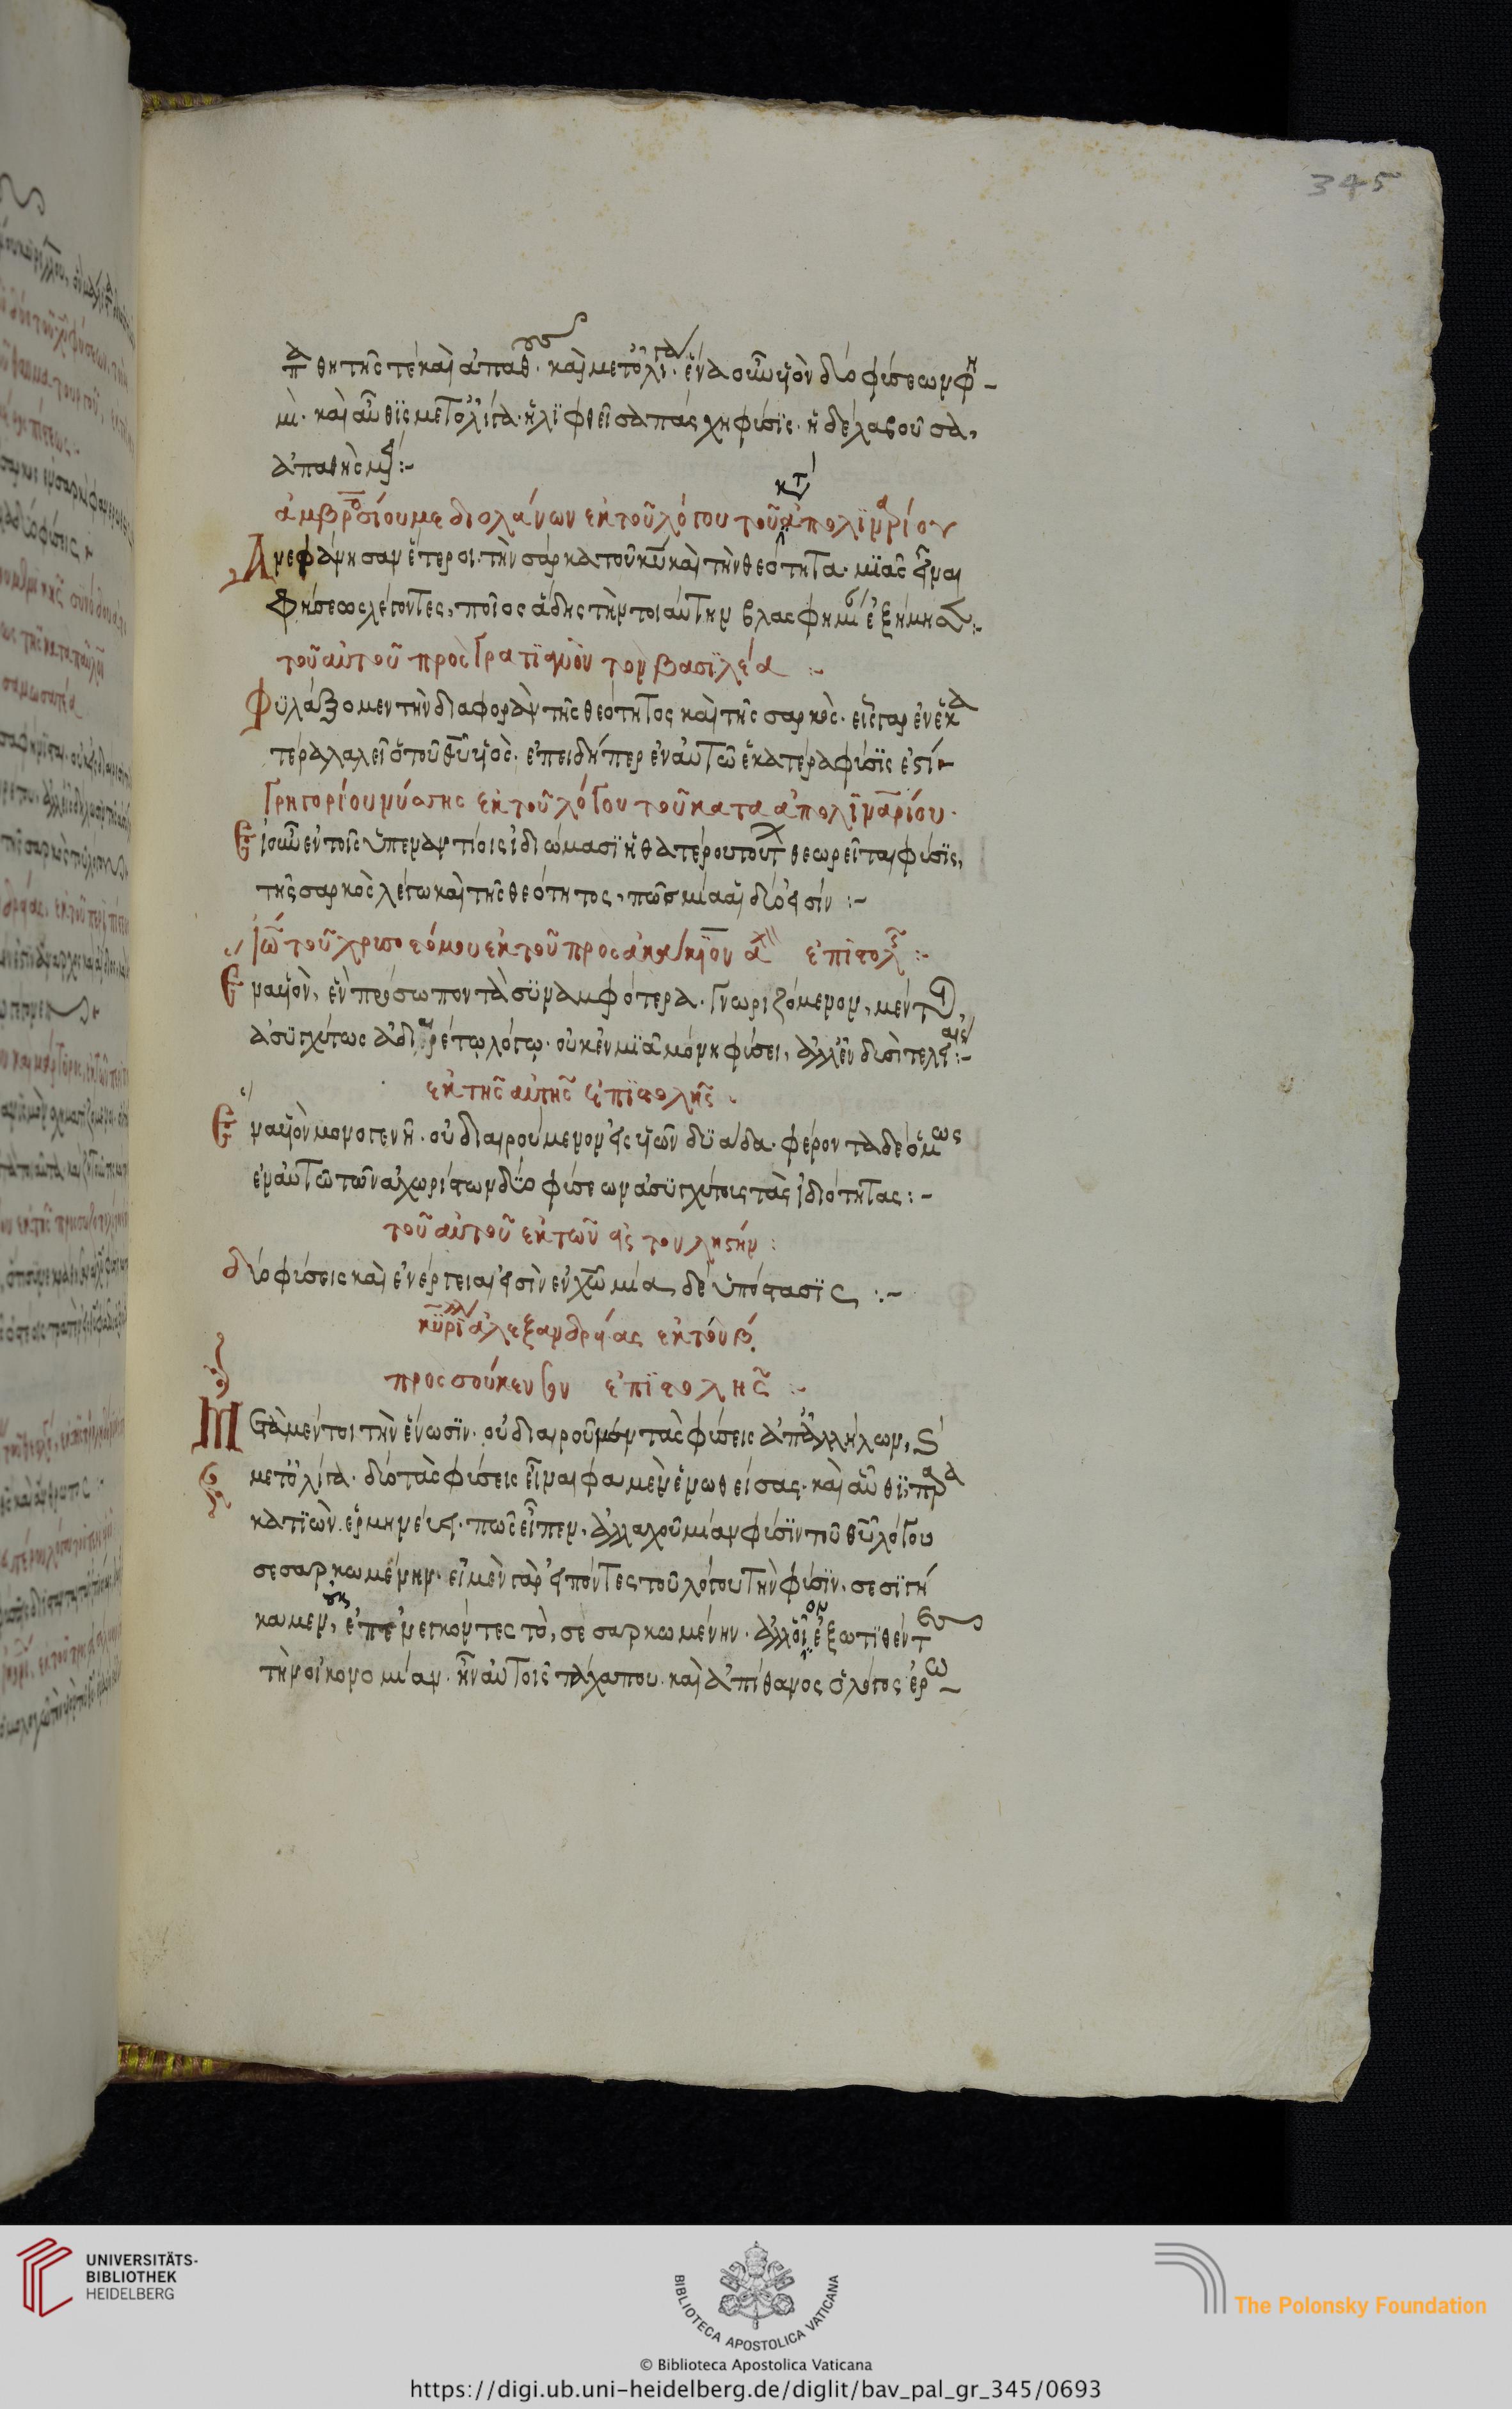 345
παθητῆς τὲ καὶ ἀπαθοῦς· καὶ μετ' ὀλίγα· ἕνα οὖν υἱὸν δύο φύσεών φη
μι· καὶ αὖθϊς μετ' ὀλίγα· ἡ λϊφθεῖσα πάσχη φύσϊς· ἡ δὲ λαβοῦσα,
ἀπαθὴς μένει :-
ἀμβροσίου μεδιολάνων ἐκ τοῦ λόγου τοῦ κατὰ ἀπολϊναρίου
Ανεφάνησαν ἕτεροι· τὴν σάρκα τοῦ κυ καὶ τὴν θεότητα· μϊᾶς εἶναι
φήσεως λέγοντες, ποῖος ἅδης τὴν τοιαύτην βλασφημίαν ἐξήμησεν :-
τοῦ αὐτοῦ πρὸς Γρατϊανὸν τὸν βασϊλέα :-
Φϋλάξομεν τὴν διαφορὰν τῆς θεότητος καὶ τῆς σαρκός· εἷς γὰρ ἐν ἑκα
τέρα λαλεῖ ὁ τοῦ θυ υἱός· ἐπειδήπερ ἐν αὐτῶ ἑκατέρα φύσϊς ἐστί -
Γρηγορίου νύσης ἐκ τοῦ λόγου τοῦ κατα ἀπολϊναρίου·
Εἰ οὖν ἐν τοῖς ὑπεναντίοις ἰδιώμασϊ ἡ θατέρου τούτων θεωρεῖται φύσϊς,
τῆς σαρκὸς λέγω καὶ τῆς θεότητος, πῶς μία αἱ δύο εἰσίν :-
Ἰω τοῦ χρυσοστόμου ἐκ τοῦ προς ἀκάκϊον α ἐπιστολῆς :-
Ενα υἱὸν, ἓν πρόσωπον τὰ σϋναμφότερα· Γνωριζόμενον, μέντοι,
ἀσϋγχύτως ἀδιαιρέτω λόγω· οὐκ ἐν μϊᾶ μόνη φύσει, ἀλλ' ἐν δυσὶ τελείαις :-
ἐκ τῆς αὐτῆς ἐπϊστολῆς·
Ενα υἱὸν μονογενῆ· οὐ διαιρούμενον εἰς υἱῶν δϋάδα· φέροντα δὲ ὅμως
ἐν αὐτῶ τῶν ἀχωρίστων δύο φύσεων ἀσϋγχύτοις τὰς ἰδιότητας :-
τοῦ αὐτοῦ ἐκ τῶν εἰς τον ληστήν :
δύο φύσεις καὶ ἐνέργειαι εἰσὶν ἐν χω μία δὲ ὑπόστασϊς :-
κϋρίλλου ἀλεξανδρείας ἐκ τοῦ β
πρὸς σούκενσον ἐπϊστολῆς :-
Μετὰ μέντοι τὴν ἕνωσϊν· οὐ διαιροῦμεν τὰς φύσεις ἀπ' ἀλλήλων, καὶ
μετ' ὀλίγα· διὸ τὰς φύσεις εἶναι φαμὲν ἑνωθείσας· καὶ αὖθϊς παρα
κατϊών· ἑρμηνεύει· πῶς εἶπεν, ἀλλα χοῦ μίαν φύσϊν τοῦ θυ λόγου
σεσαρκωμένην· εἰ μὲν γὰρ εἰπόντες τοῦ λόγου τὴν φύσϊν· σεσϊγή
καμεν, οὐκ ἐπενεγκόντες τὸ, σεσαρκωμένην· ἀλλ' οἷον ἔξω τϊθέντες
τὴν οἰκονομίαν· ἦν αὐτοῖς τάχα που· καὶ ἀπίθανος ὁ λόγος ἐρω -
UNIVERSITÄTS-
BIBLIOTHEK
HEIDELBERG
BIBLIOTECA APOSTOLICA VATICANA
The Polonsky Foundation
© Biblioteca Apostolica Vaticana
https://digi.ub.uni-heidelberg.de/diglit/bav_pal_gr_345/0693